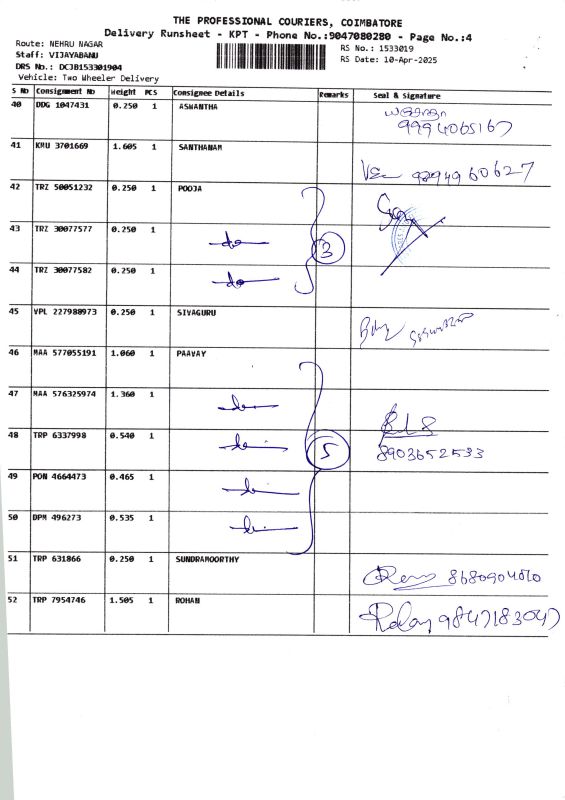 THE PROFESSIONAL COURIERS, COIMBATORE
Delivery Runsheet - KPT - Phone No.:9047080280 - Page No.:4
Route: NEHRU NAGAR
RS No.: 1533019
Staff: VIJAYABANU
RS Date: 10-Apr-2025
DRS No.: DCJB153301904
Vehicle: Two Wheeler Delivery
S No Consignment No Weight PCS Consignee Details Remarks Seal & Signature
40 DDG 1047431 0.250 1 ASWANTHA
9994065167
41 KMU 3701669 1.605 1 SANTHANAM
9894960627
42 TRZ 50051232 0.250 1 POOJA
43 TRZ 30077577 0.250 1 do
3
44 TRZ 30077582 0.250 1 do
45 VPL 227980973 0.250 1 SIVAGURU
46 MAA 577055191 1.060 1 PAAVAY
47 MAA 576325974 1.360 1
48 TRP 6337998 0.540 1
5
8903652533
49 PON 4664473 0.465 1
50 DPM 496273 0.535 1
51 TRP 631866 0.250 1 SUNDRAMOORTHY
52 TRP 7954746 1.505 1 ROHAN
9847183047